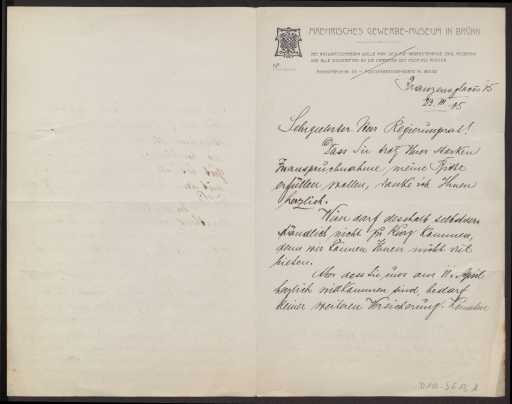 MAEHRISCHES GEWERBE-MUSEUM IN BRÜNN
Nº
Franzensglacis 15
29. III. 05
Sehrgeehrter Herr Regierungsrat!
Dass Sie trotz Ihrer starken
Inanspruchnahme, meine Bitte
erfüllen wollen, danke ich Ihnen
herzlich.
Wien darf deshalb selbstver-
ständlich nicht zu kurz kommen,
denn wir können Ihnen nicht viel
bieten.
Aber dass Sie uns am 11. April
herzlich willkommen sind, bedarf
keiner weiteren Versicherung.